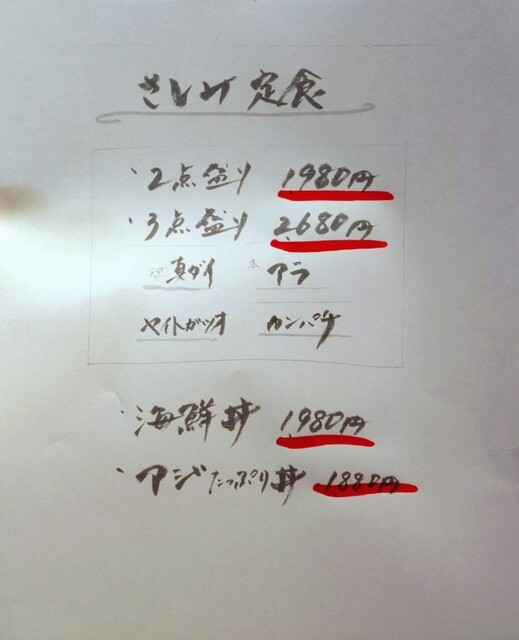 さしみ定食
・2点盛り 1980円
・3点盛り 2,680円
真ダイ 本アラ
ヤイトガツオ カンパチ
・海鮮丼 1,980円
・アジたっぷり丼 1880円